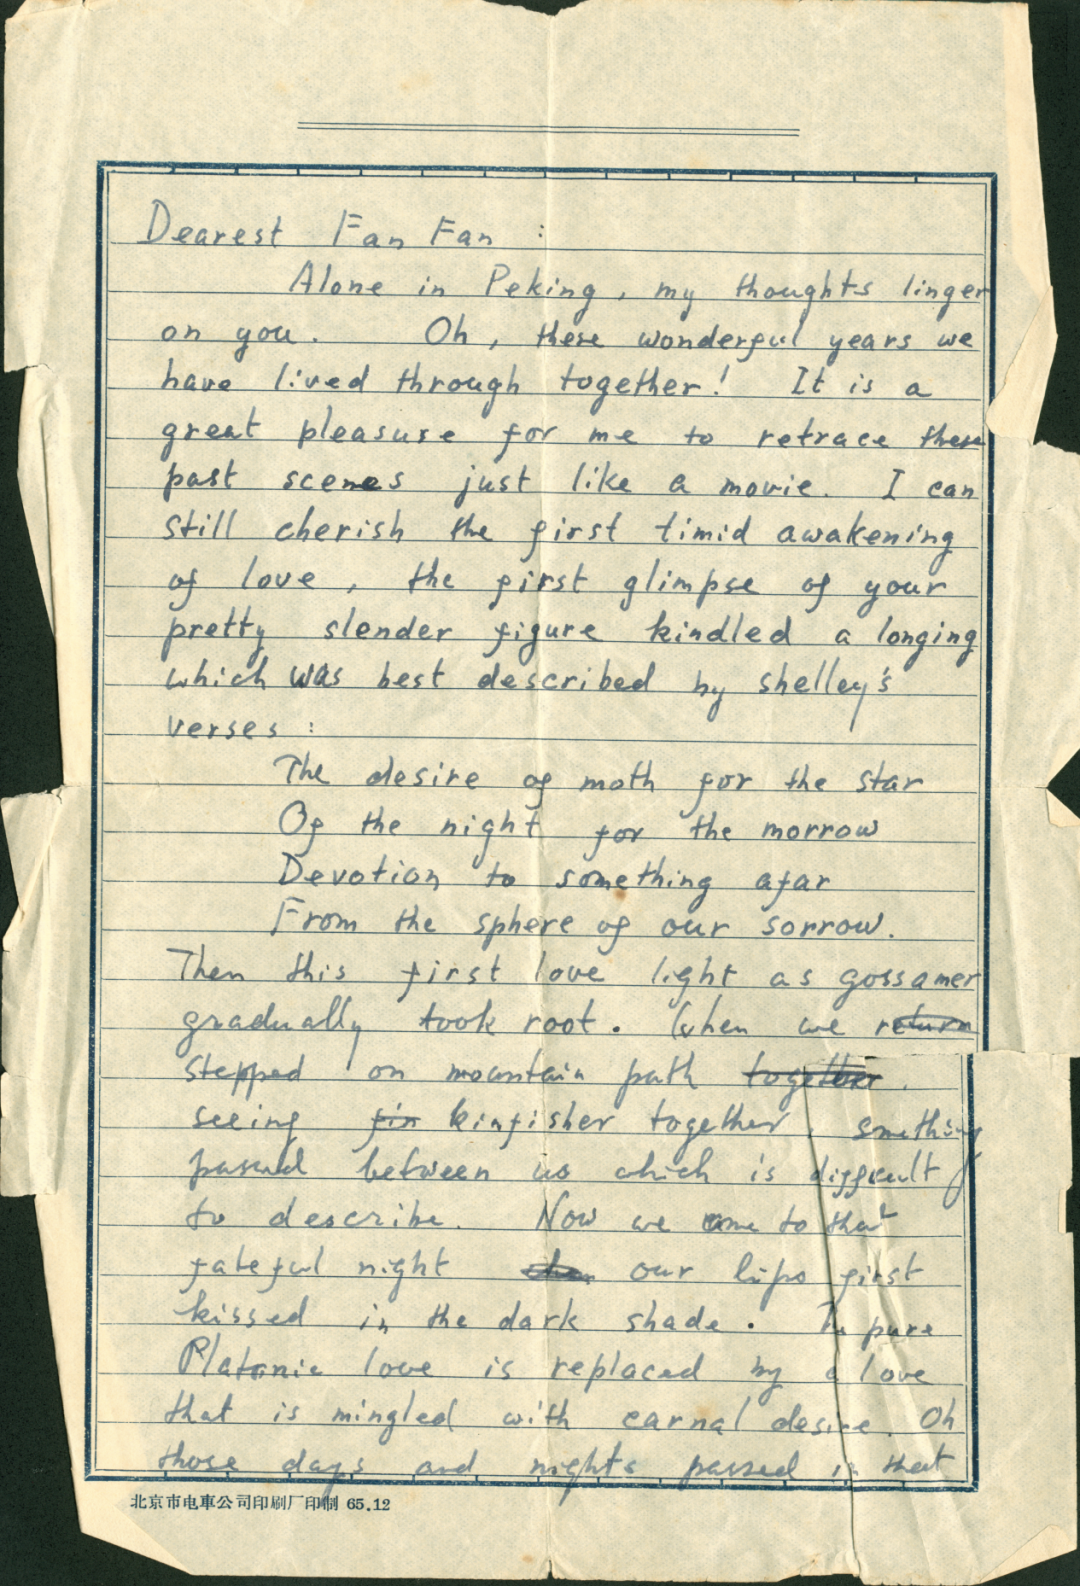 Dearest Fan Fan :
Alone in Peking, my thoughts linger
on you. Oh, these wonderful years we
have lived through together! It is a
great pleasure for me to retrace these
past scenes just like a movie. I can
still cherish the first timid awakening
of love, the first glimpse of your
pretty slender figure kindled a longing
which was best described by shelley's
verses :
The desire of moth for the star
Of the night for the morrow
Devotion to something afar
From the sphere of our sorrow.
Then this first love light as gossamer
gradually took root. When we return
stepped on mountain path together.
seeing fin kinfisher together, something
passed between us which is difficult
to describe. Now we come to that
fateful night when our lips first
kissed in the dark shade. The pure
Platonic love is replaced by a love
that is mingled with carnal desire. Oh
those days and nights passed in that
北京市电車公司印刷厂印制 65.12